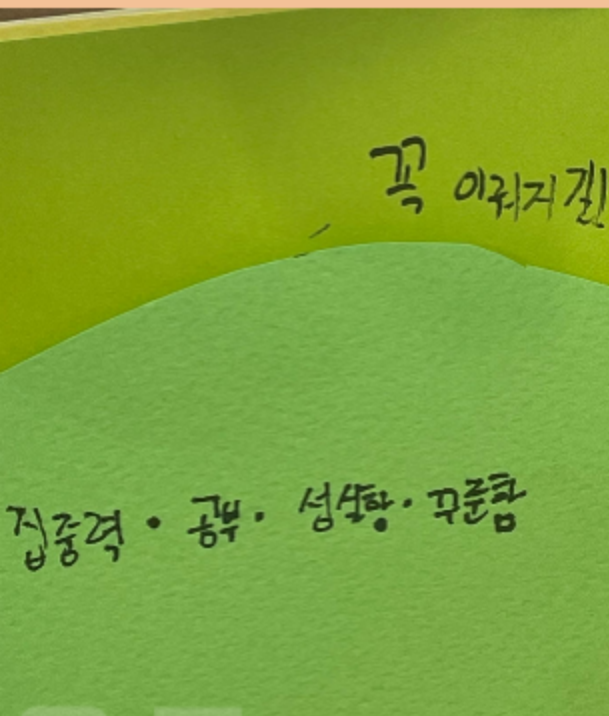 꼭 이뤄지길!
집중력 · 공부 · 성실함 · 꾸준함